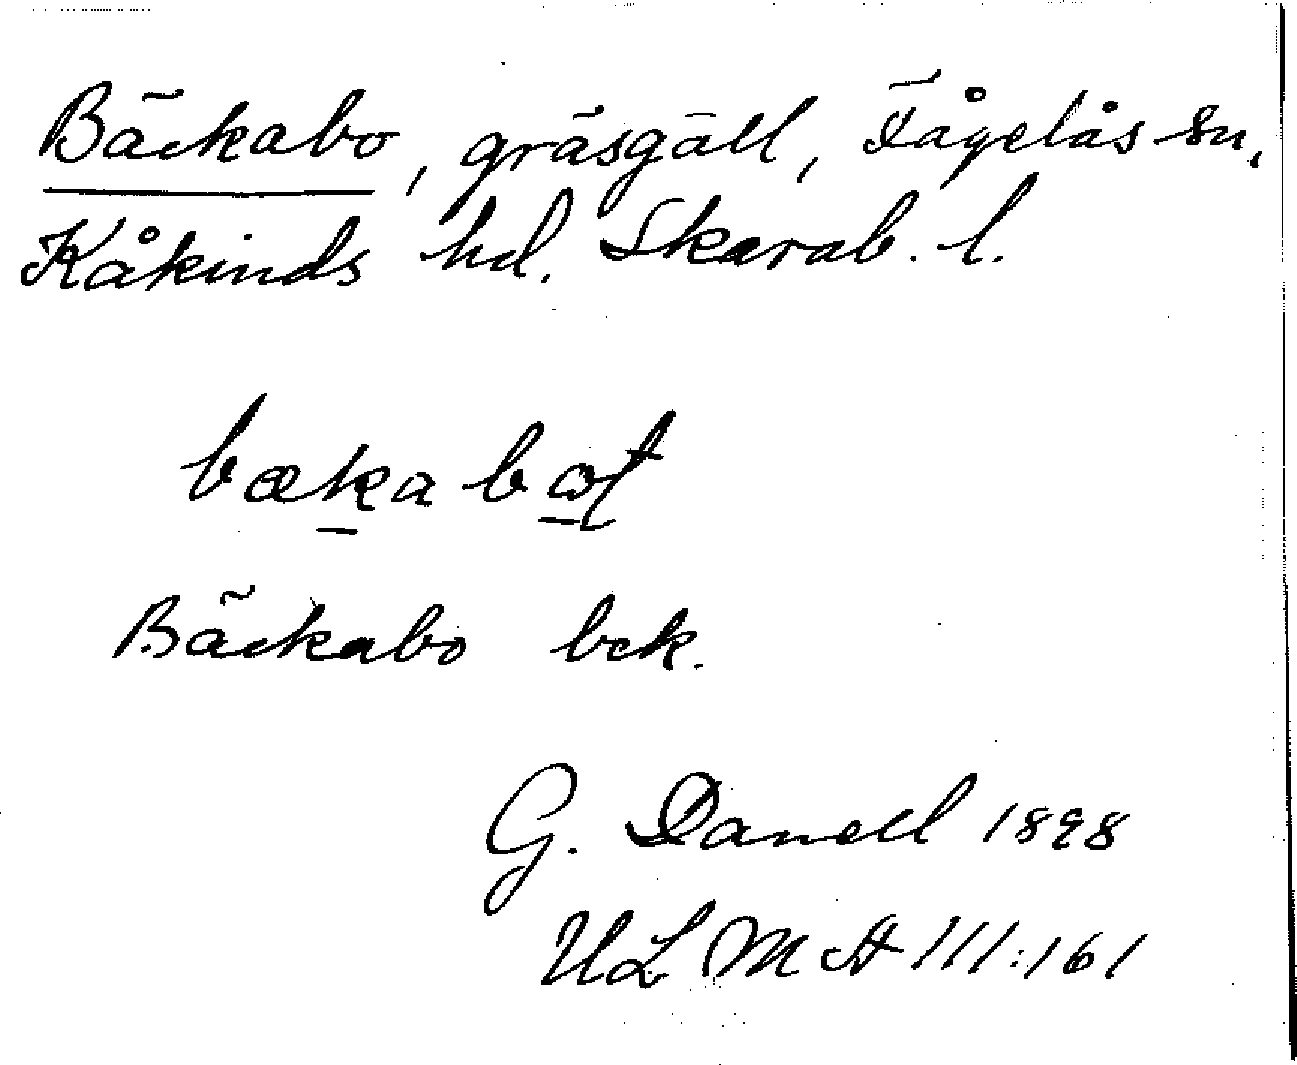 Bäckabo, gräsgäll, Fågelås sn,
Kåkinds hd. Skarab. l.
bækabωt
Bäckabo bck.
G. Danell 1898
ULMA 111:161